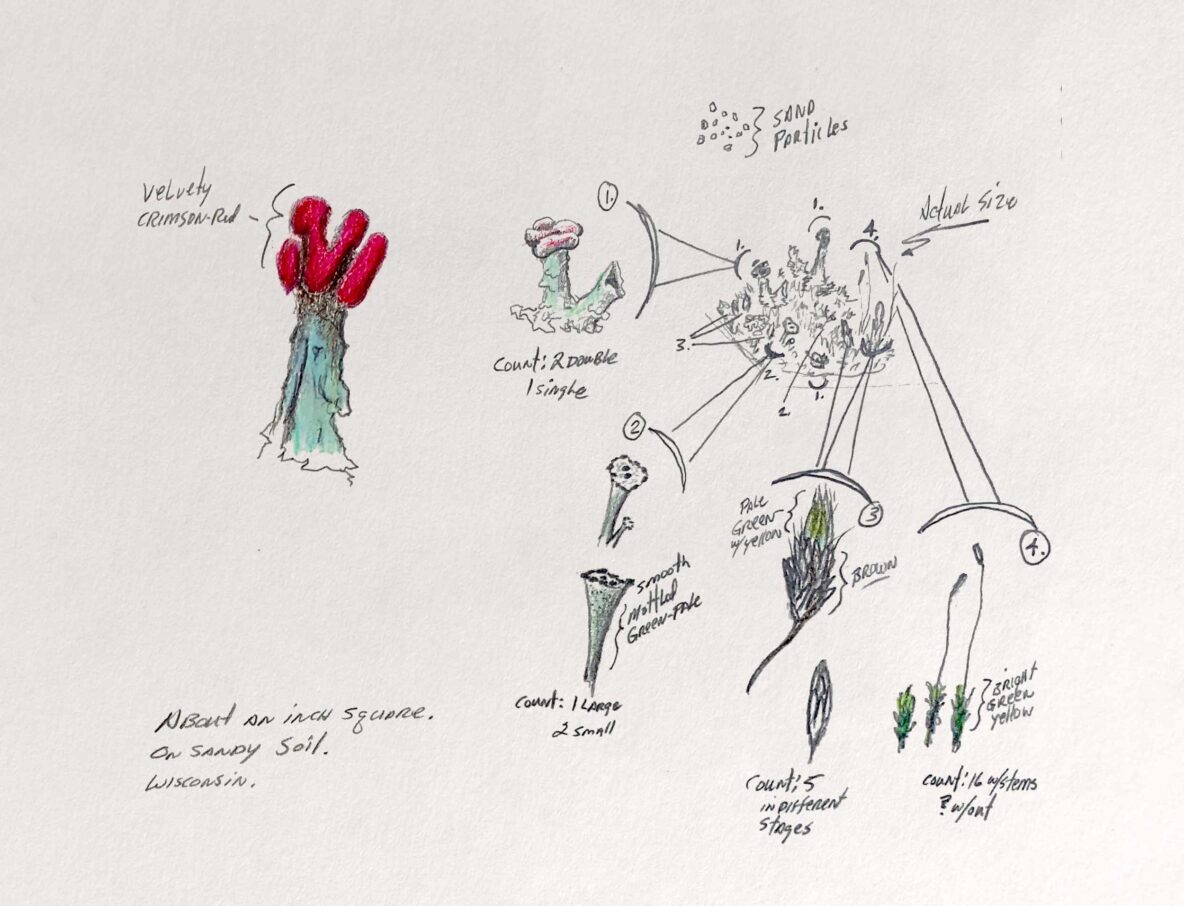 SAND
Particles
Velvety
CRIMSON-Red
Actual Size
1.
1.
1.
4.
3.
2.
2.
1.
Count: 2 Double
1 single
2
PALE
GREEN
w/yellow
3
BROWN
4.
smooth
mottled
GREEN-PALE
BRIGHT
GREEN
yellow
Count: 1 LARGE
2 small
About an inch square.
On SANDY Soil.
WISCONSIN.
Count: 5
in Different
Stages
Count: 16 w/stems
? w/out